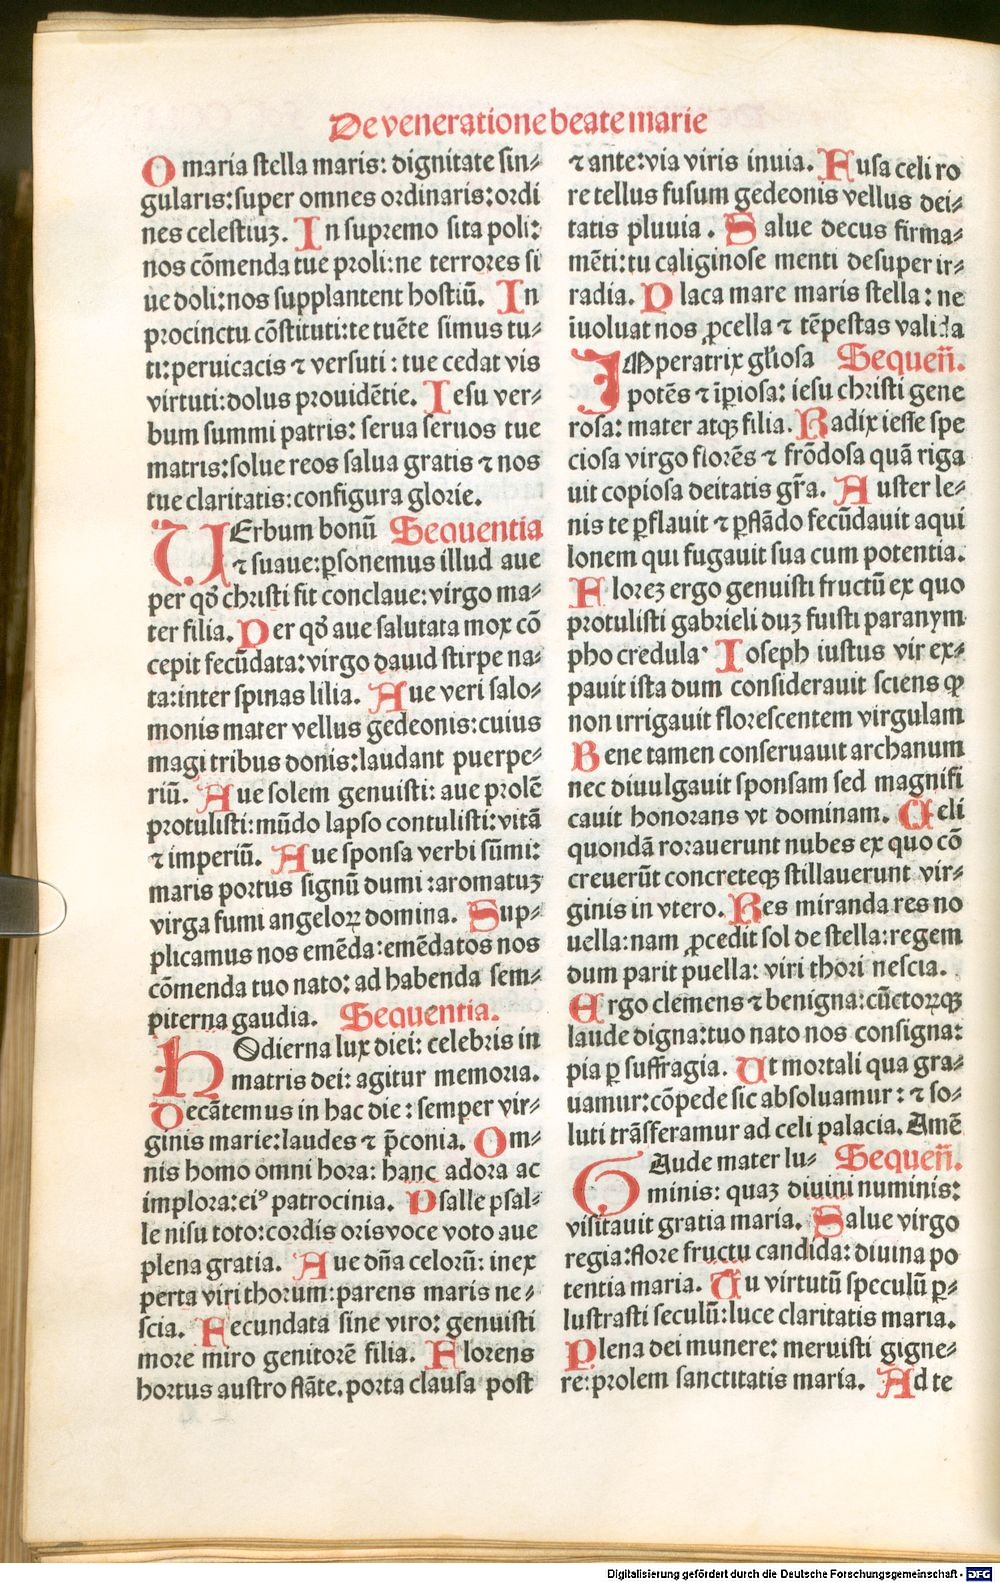 De veneratione beate marie
O maria stella maris: dignitate sin⸗
gularis: super omnes ordinaris: ordi
nes celestiuꝫ. In supremo sita poli:
nos cōmenda tue proli: ne terrores si
ue doli: nos supplantent hostiū. In
procinctu cōstituti: te tuēte simus tu⸗
ti: peruicacis ⁊ versuti: tue cedat vis
virtuti: dolus prouidētie. Iesu ver⸗
bum summi patris: serua seruos tue
matris: solue reos salua gratis ⁊ nos
tue claritatis: configura glorie.
VErbum bonū Sequentia
⁊ suaue: ꝑsonemus illud aue
per qď christi fit conclaue: virgo ma⸗
ter filia. Per qď aue salutata mox cō
cepit fecūdata: virgo dauid stirpe na⸗
ta: inter spinas lilia. Aue veri salo⸗
monis mater vellus gedeonis: cuius
magi tribus donis: laudant puerpe⸗
riū. Aue solem genuisti: aue prolē
protulisti: mūdo lapso contulisti: vitā
⁊ imperiū. Aue sponsa verbi sūmi:
maris portus signū dumi: aromatuꝫ
virga fumi angeloꝝ domina. Sup⸗
plicamus nos emēda: emēdatos nos
cōmenda tuo nato: ad habenda sem⸗
piterna gaudia. Sequentia.
HOdierna lux diei: celebris in
matris dei: agitur memoria.
Decātemus in hac die: semper vir⸗
ginis marie: laudes ⁊ p̄conia. Om⸗
nis homo omni hora: hanc adora ac
implora: eiꝰ patrocinia. Psalle psal⸗
le nisu toto: cordis oris voce voto aue
plena gratia. Aue dn̄a celorū: inex
perta viri thorum: parens maris ne⸗
scia. Fecundata sine viro: genuisti
more miro genitorē filia. Florens
hortus austro flāte. porta clausa post
⁊ ante: via viris inuia. Fusa celi ro
re tellus fusum gedeonis vellus dei⸗
tatis pluuia. Salue decus firma⸗
mēti: tu caliginose menti desuper ir⸗
radia. Placa mare maris stella: ne
iuoluat nos ꝓcella ⁊ tēpestas valida
IMperatrix gl̄iosa Sequen̄.
potēs ⁊ īpiosa: iesu christi gene
rosa: mater atqꝫ filia. Radix iesse spe
ciosa virgo florēs ⁊ frōdosa quā riga
uit copiosa deitatis gr̄a. Auster le⸗
nis te ꝑflauit ⁊ ꝑflādo fecūdauit aqui
lonem qui fugauit sua cum potentia.
Floreꝫ ergo genuisti fructū ex quo
protulisti gabrieli duꝫ fuisti paranym
pho credula. Ioseph iustus vir ex⸗
pauit ista dum considerauit sciens ꝙ
non irrigauit florescentem virgulam
Bene tamen conseruauit archanum
nec diuulgauit sponsam sed magnifi
cauit honorans vt dominam. Celi
quondā rorauerunt nubes ex quo cō
creuerūt concreteqꝫ stillauerunt vir⸗
ginis in vtero. Res miranda res no
uella: nam ꝓcedit sol de stella: regem
dum parit puella: viri thori nescia.
Ergo clemens ⁊ benigna: cūctoꝝqꝫ
laude digna: tuo nato nos consigna:
pia ꝑ suffragia. Ut mortali qua gra⸗
uamur: cōpede sic absoluamur: ⁊ so⸗
luti trāsferamur ad celi palacia. Amē
GAude mater lu⸗ Sequen̄.
minis: quaꝫ diuini numinis:
visitauit gratia maria. Salue virgo
regia: flore fructu candida: diuina po
tentia maria. Tu virtutū speculū ꝑ⸗
lustrasti seculū: luce claritatis maria.
Plena dei munere: meruisti gigne⸗
re: prolem sanctitatis maria. Ad te
Digitalisierung gefördert durch die Deutsche Forschungsgemeinschaft - DFG